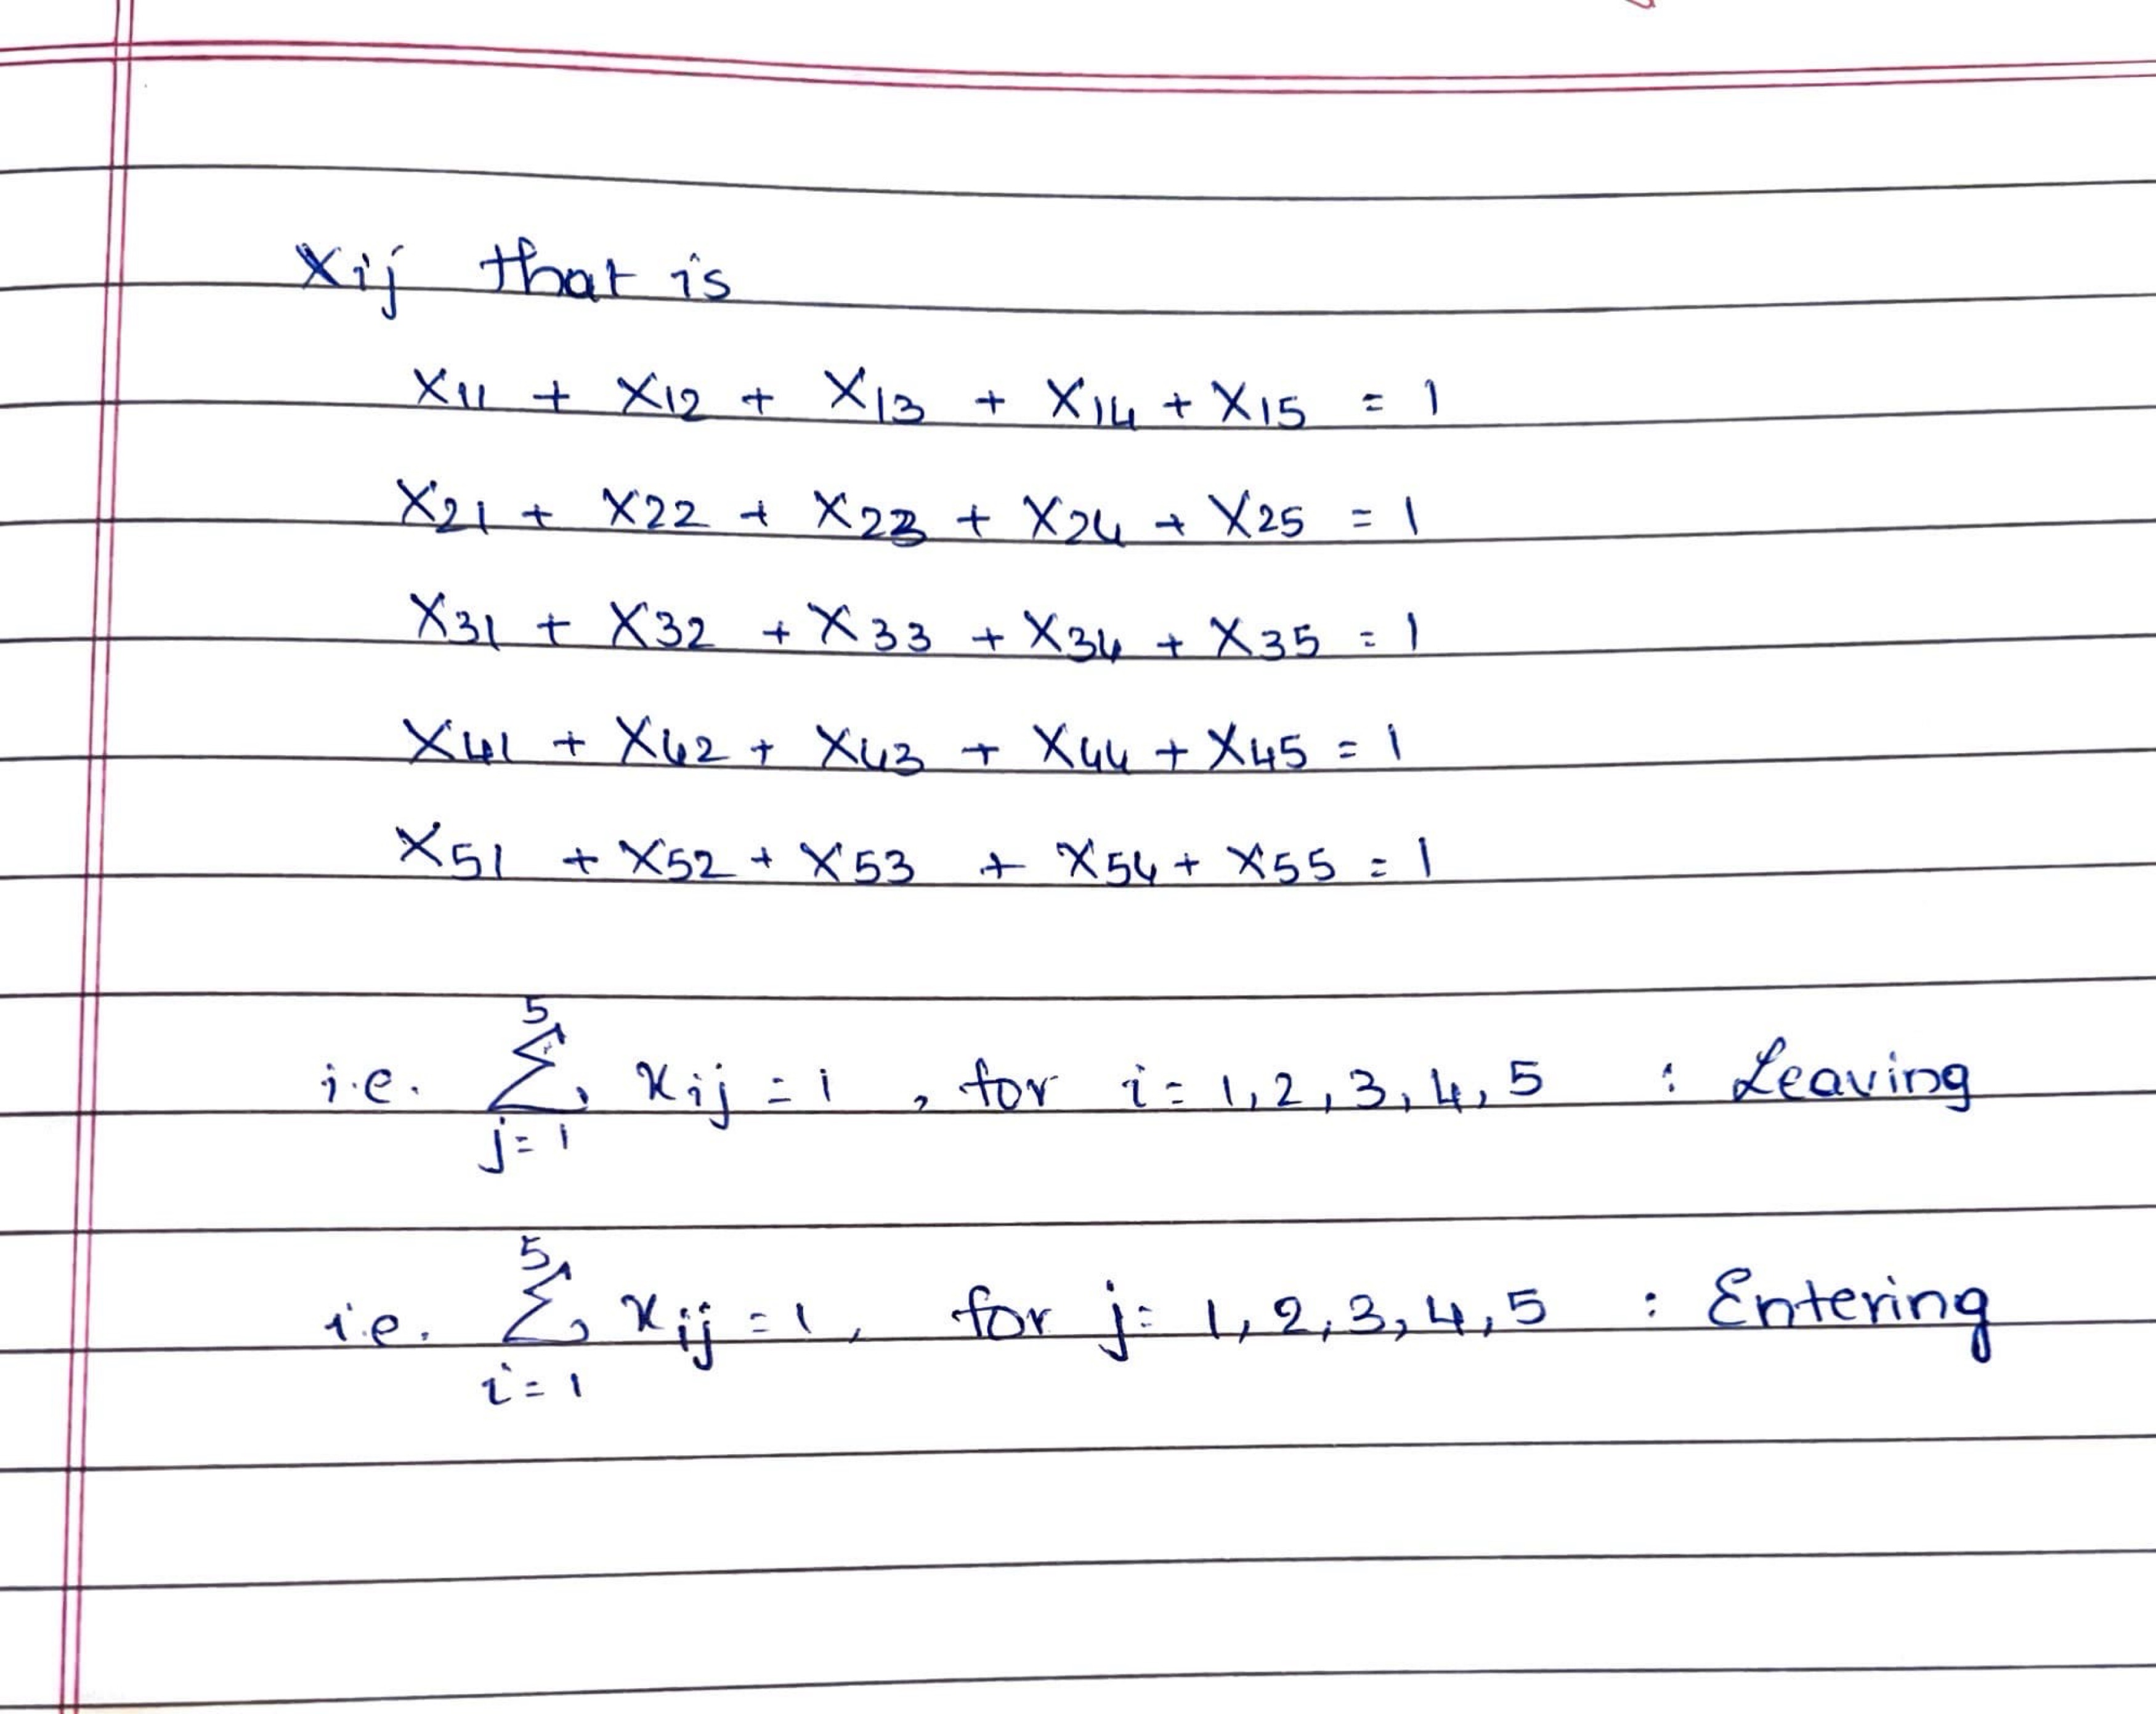 Xij that is
X11 + X12 + X13 + X14 + X15 = 1
X21 + X22 + X23 + X24 + X25 = 1
X31 + X32 + X33 + X34 + X35 = 1
X41 + X42 + X43 + X44 + X45 = 1
X51 + X52 + X53 + X54 + X55 = 1
i.e. 5∑j=1 xij = 1 , for i = 1, 2, 3, 4, 5 : Leaving
i.e. 5∑i=1 xij = 1, for j = 1, 2, 3, 4, 5 : Entering